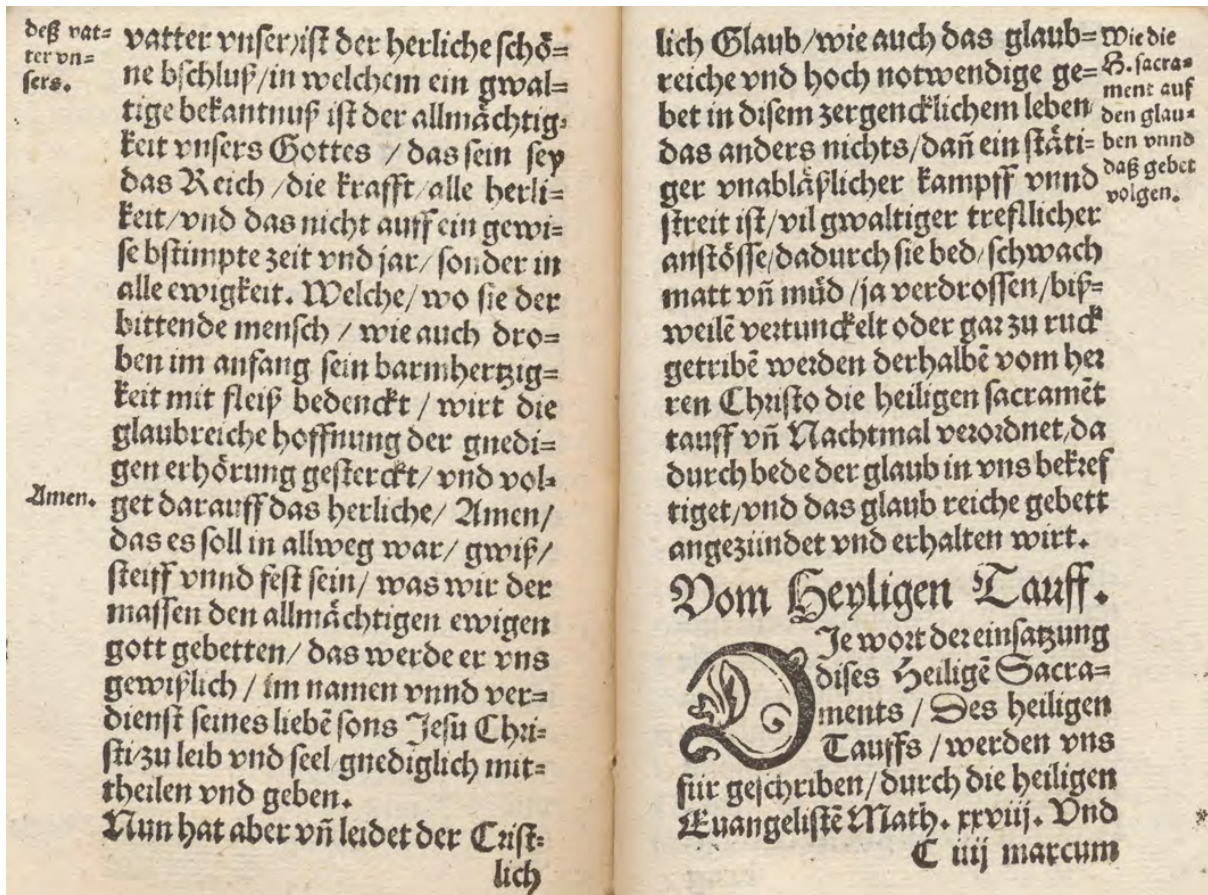 deß vat=
ter vn=
sers.
vatter vnser/ist der herliche schö=
ne bschluß/in welchem ein gwal=
tige bekantnuß ist der allmächtig=
keit vnsers Gottes / das sein sey
das Reich /die krafft/alle herli=
keit/vnd das nicht auff ein gewi=
se bstimpte zeit vnd jar/ sonder in
alle ewigkeit. Welche/ wo sie der
bittende mensch / wie auch dro=
ben im anfang sein barmhertzig=
keit mit fleiß bedenckt / wirt die
glaubreiche hoffnung der gnedi=
gen erhörung gesterckt/ vnd vol=
Amen.
get darauff das herliche/ Amen/
das es soll in allweg war/ gwiß/
steiff vnnd fest sein/ was wir der
massen den allmächtigen ewigen
gott gebetten/ das werde er vns
gewißlich / im namen vnnd ver=
dienst seines liebẽ sons Jesu Chri=
sti/zu leib vnd seel/gnediglich mit=
theilen vnd geben.
Nun hat aber vñ leidet der Crist=
lich
lich Glaub/wie auch das glaub=
reiche vnd hoch notwendige ge=
bet in disem zergencklichem leben
das anders nichts/dañ ein stäti=
ger vnabläßlicher kampff vnnd
streit ist/vil gwaltiger trefllicher
anstösse/dadurch sie bed/schwach
matt vñ müd /ja verdrossen/biß=
weilẽ vertunckelt oder gar zu ruck
getribẽ werden derhalbẽ vom her
ren Christo die heiligen sacramẽt
tauff vñ Nachtmal verordnet/da
durch bede der glaub in vns bekref
tiget/vnd das glaub reiche gebett
angezündet vnd erhalten wirt.
Wie die
H. sacra=
ment auf
den glau=
ben vnnd
daß gebet
volgen.
Vom Heyligen Tauff.
DJe wort der einsatzung
dises Heiligẽ Sacra=
ments / Des heiligen
Tauffs / werden vns
für geschriben/durch die heiligen
Euangelistẽ Math. xxviij. Vnd
C iiij marcum